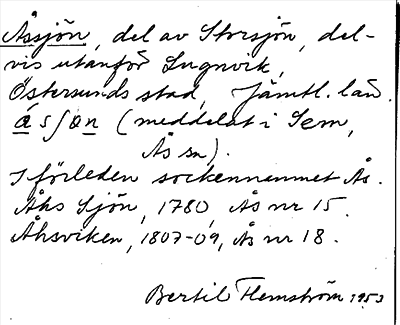 Åssjön, del av Storsjön, del-
vis utanför Lugnvik,
Östersunds stad, Jämtl. län.
å s ʃ ø n (meddelat i Sem,
Ås sn).
I förleden sockennamnet Ås.
Åhs Sjön, 1780, Ås nr 15.
Åhsviken, 1807-09, Ås nr 18.
Bertil Flemström 1953